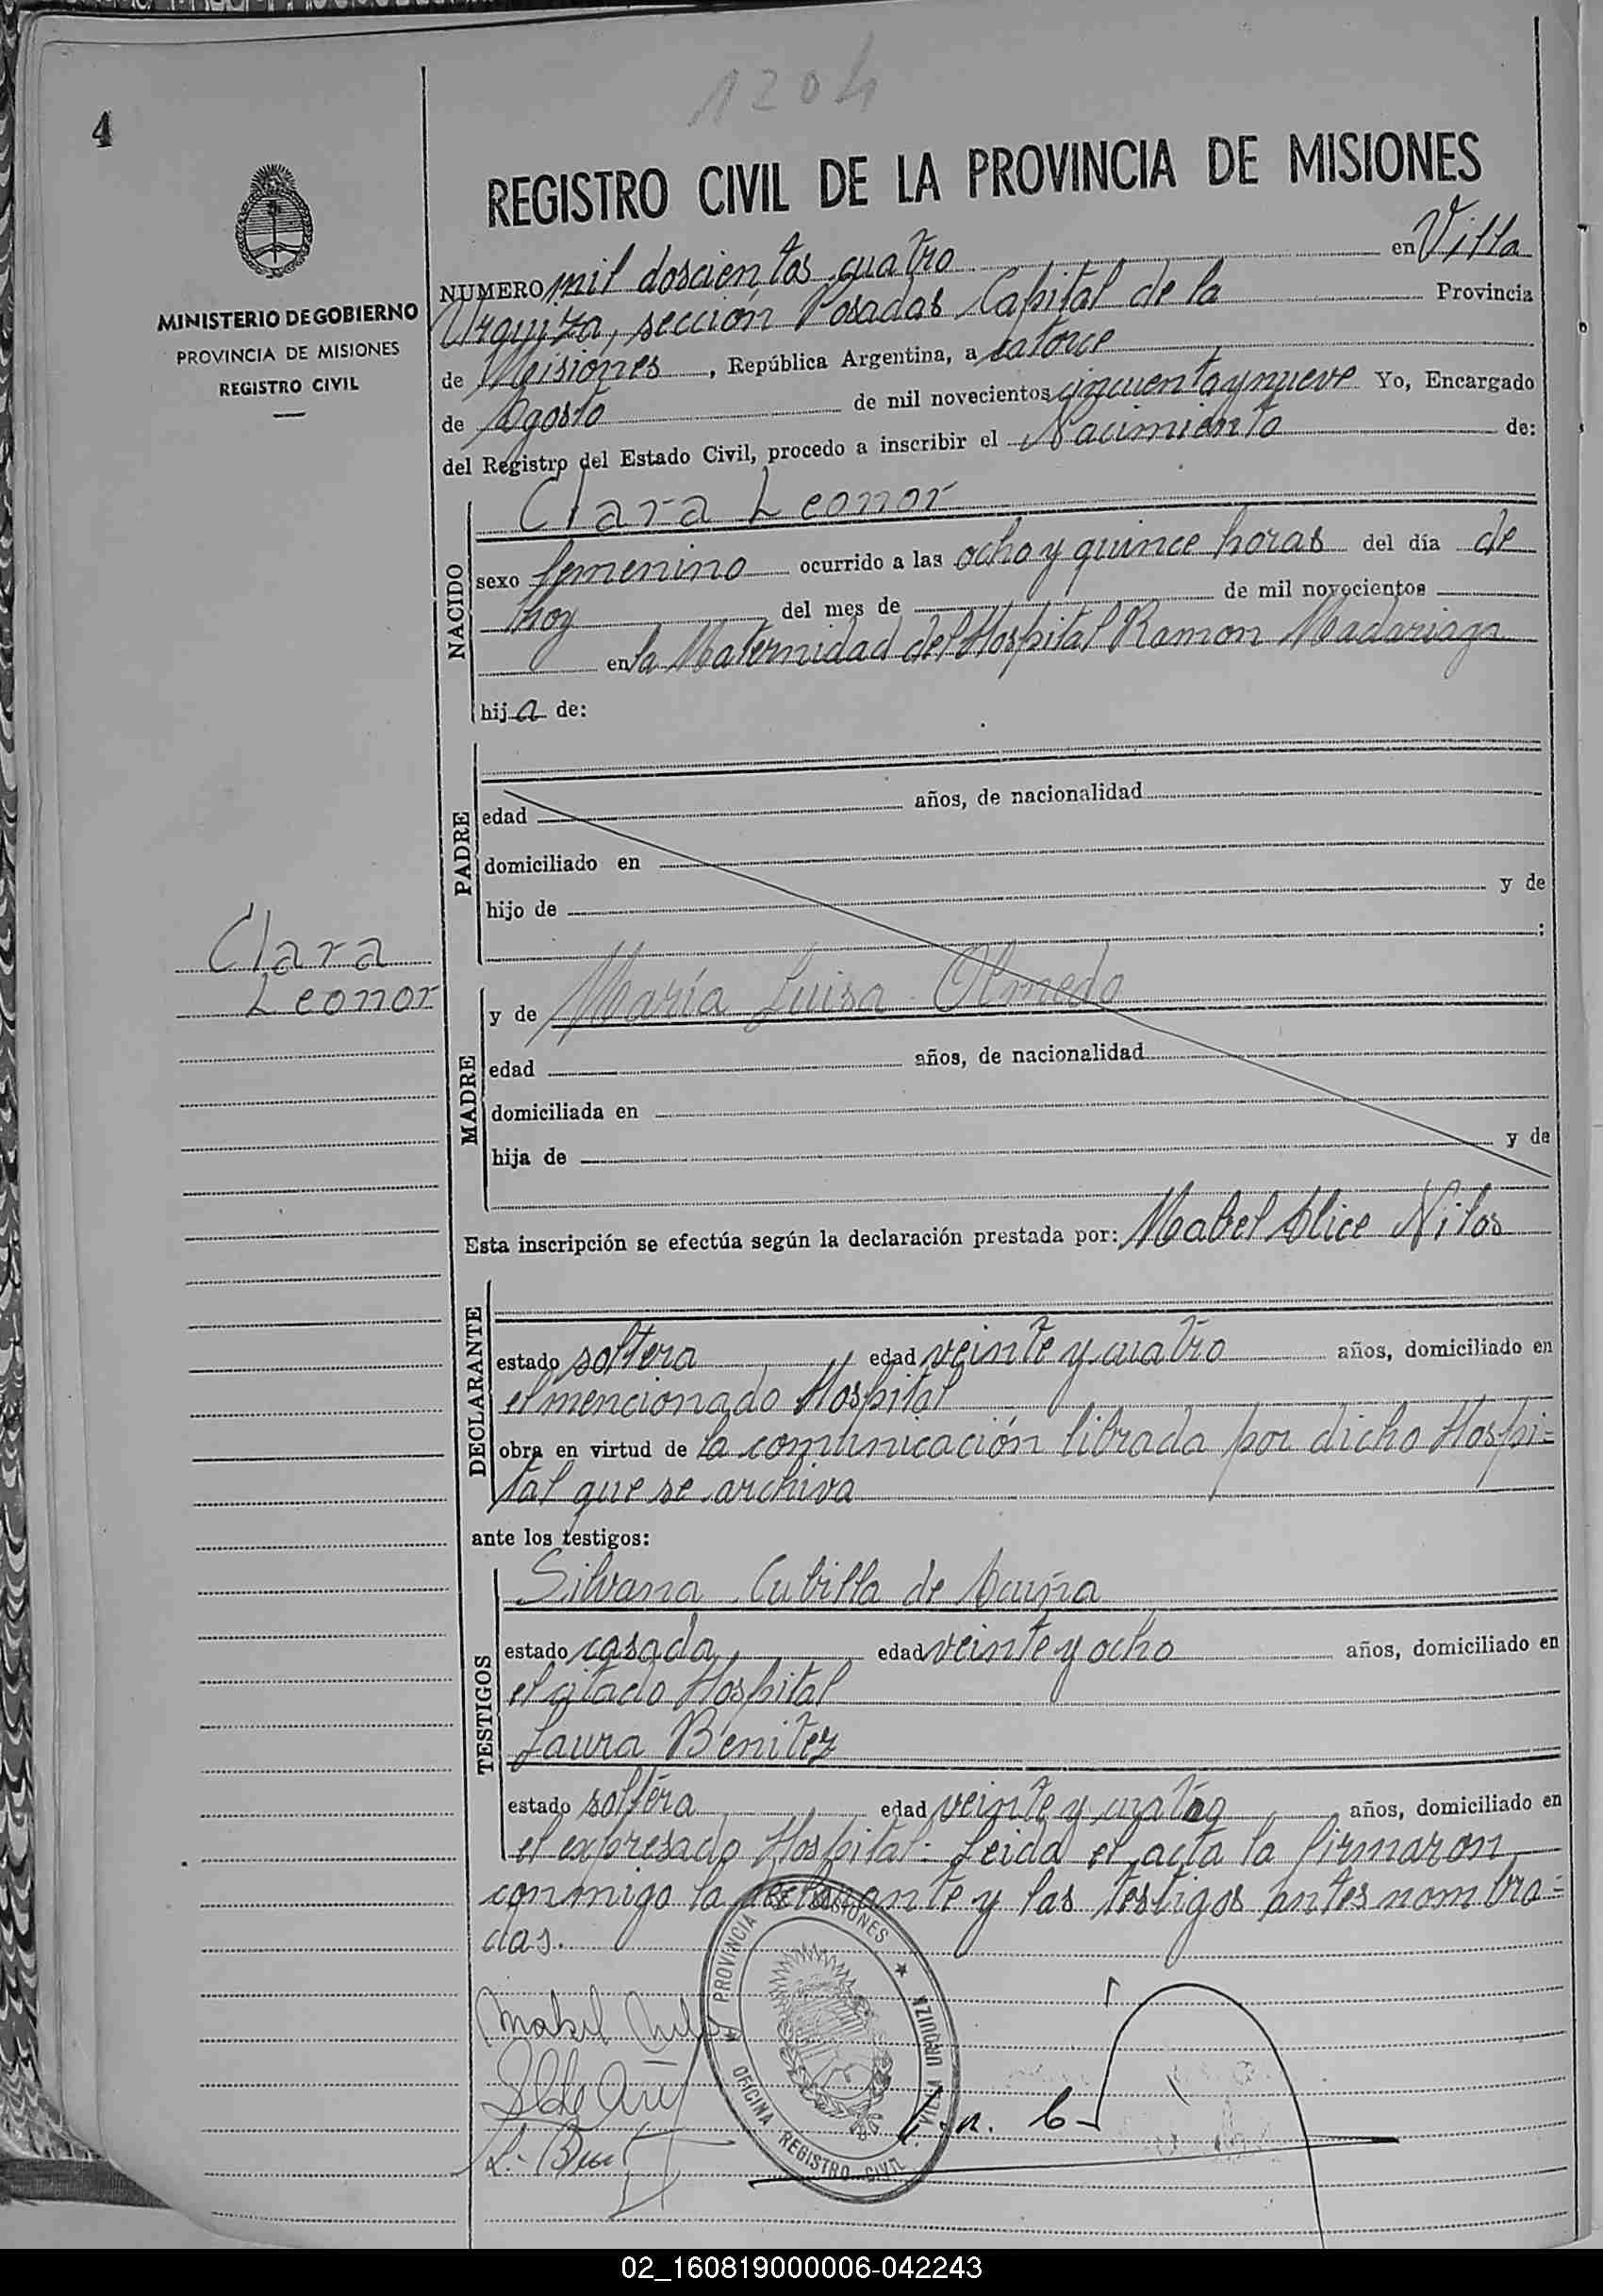 1204
4
REGISTRO CIVIL DE LA PROVINCIA DE MISIONES
MINISTERIO DE GOBIERNO
PROVINCIA DE MISIONES
REGISTRO CIVIL
NUMERO mil doscientos cuatro en Villa
Urquiza, sección Posadas Capital de la Provincia
de Misiones, República Argentina, a catorce
de Agosto de mil novecientos cincuenta y nueve Yo, Encargado
del Registro del Estado Civil, procedo a inscribir el Nacimiento de:
NACIDO
Clara Leonor
sexo femenino ocurrido a las ocho y quince horas del día de
hoy del mes de de mil novecientos
en la Maternidad del Hospital Ramon Madariaga
hija de:
PADRE
edad años, de nacionalidad
domiciliado en
hijo de y de
:
Clara
Leonor
MADRE
y de María Luisa Olmedo
edad años, de nacionalidad
domiciliada en
hija de y de
Esta inscripción se efectúa según la declaración prestada por: Mabel Alice Nilos
DECLARANTE
estado soltera edad veinte y cuatro años, domiciliado en
el mencionado Hospital
obra en virtud de la comunicación librada por dicho Hospi=
tal que se archiva
ante los testigos:
TESTIGOS
Silvana Cubilla de
estado casada edad veinte y ocho años, domiciliado en
el citado Hospital
Laura Benitez
estado soltera edad veinte y cuatro años, domiciliado en
el expresado Hospital. Leida el acta la firmaron
conmigo la declarante y las testigos antes nombra=
das.
PROVINCIA DE MISIONES
OFICINA REGISTRO CIVIL
VILLA URQUIZA
Mabel
02_160819000006-042243